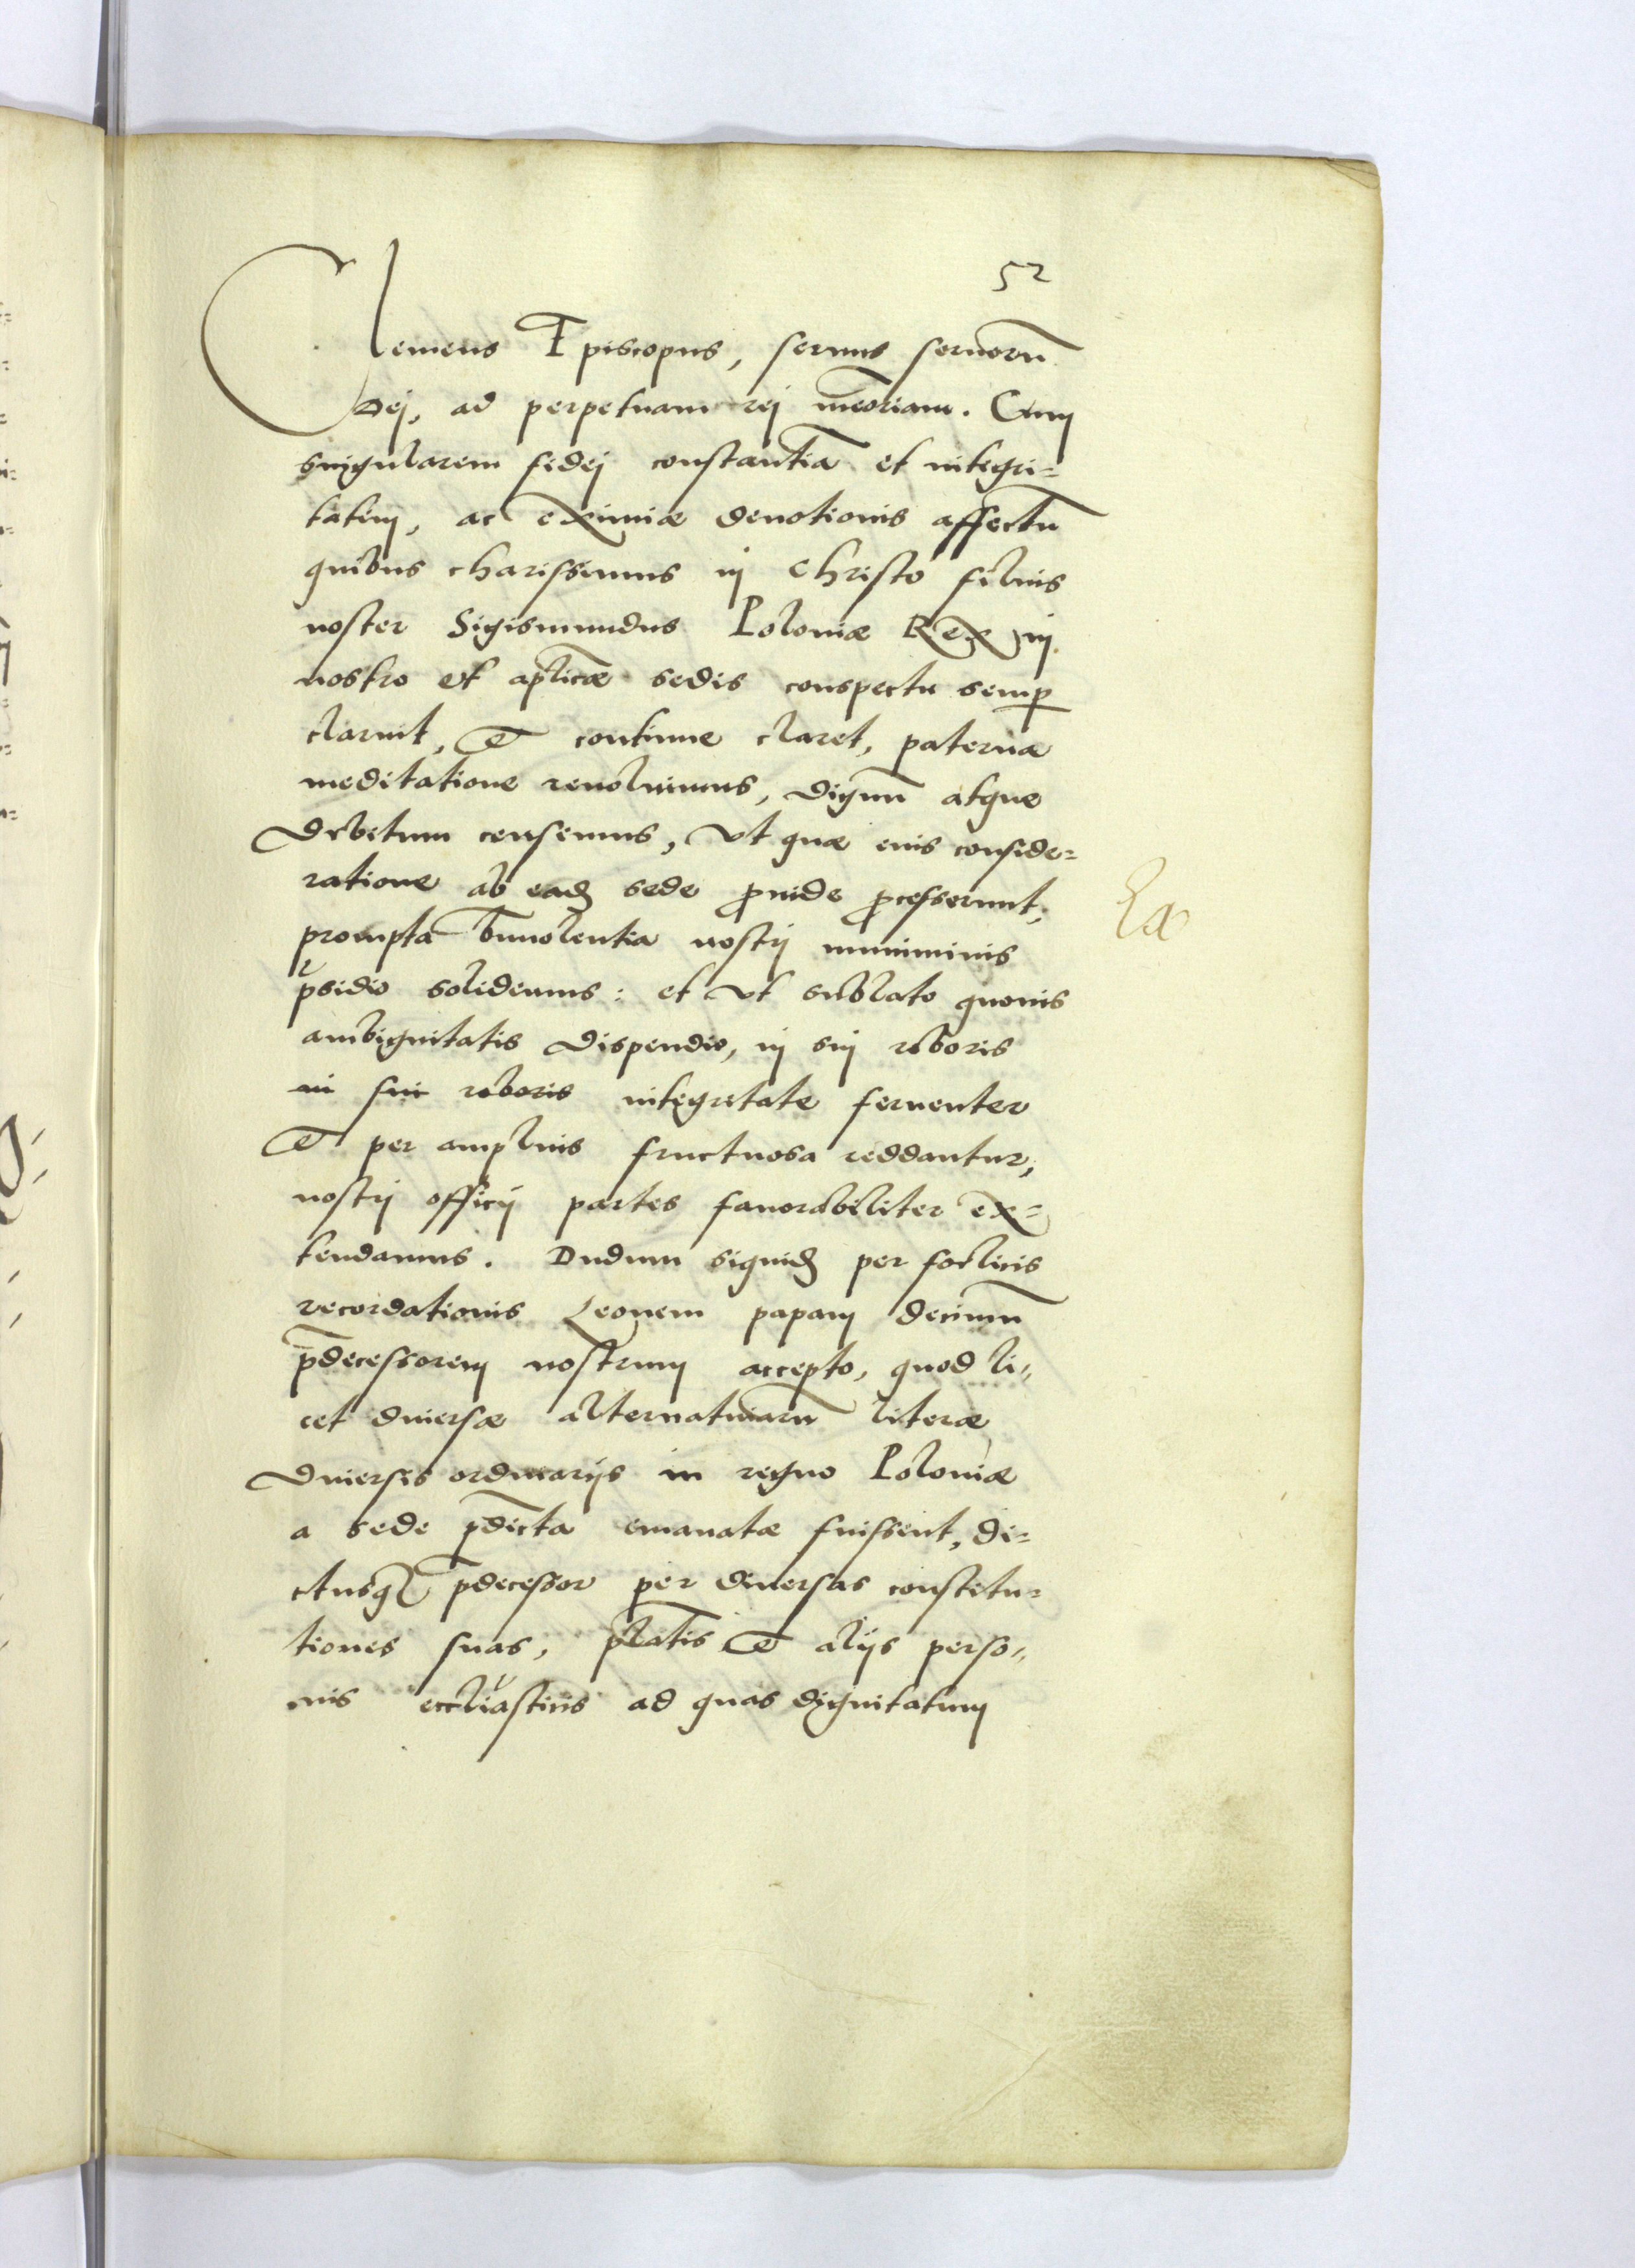 52
Clemens Episcopus, seruus seruorū
Dej, ad perpetuam rej meōriam. Cum
singularem fidej constantiā et integri=
tatem, ac eximiæ deuotionis affectū
quibus charissimus in Christo filius
noster Sigismundus Poloniæ Rex in
nostro et aplicæ sedis conspectu semp
claruit, & continue claret, paterna
meditatione reuoluimus, dignū atque
debitum censemus, vt quæ eius conside=
ratione ab eadē sede prouide processerunt,
prompta beniuolentia nostrj muniminis
p̄sidio solidemus: et vt sublato quouis
ambiguitatis dispendio, in suj roboris
in sui roboris integritate feruenter
& per amplius fructuosa reddantur,
nostrj officij partes fauorabiliter ex=
tendamus. Dudum siquidē per fœlicis
recordationis Leonem papam decimū
p̄decessorem nostrum accepto, quod li=
cet diuersæ alternatiuarū literæ
diuersis ordinarijs in regno Poloniæ
a sede p̄dicta emanatæ fuissent, di=
ctusq̨ p̄decessor per diuersas constitu=
tiones suas, p̄latis & alijs perso=
nis eccliasticis ad quas dignitatum
Ex